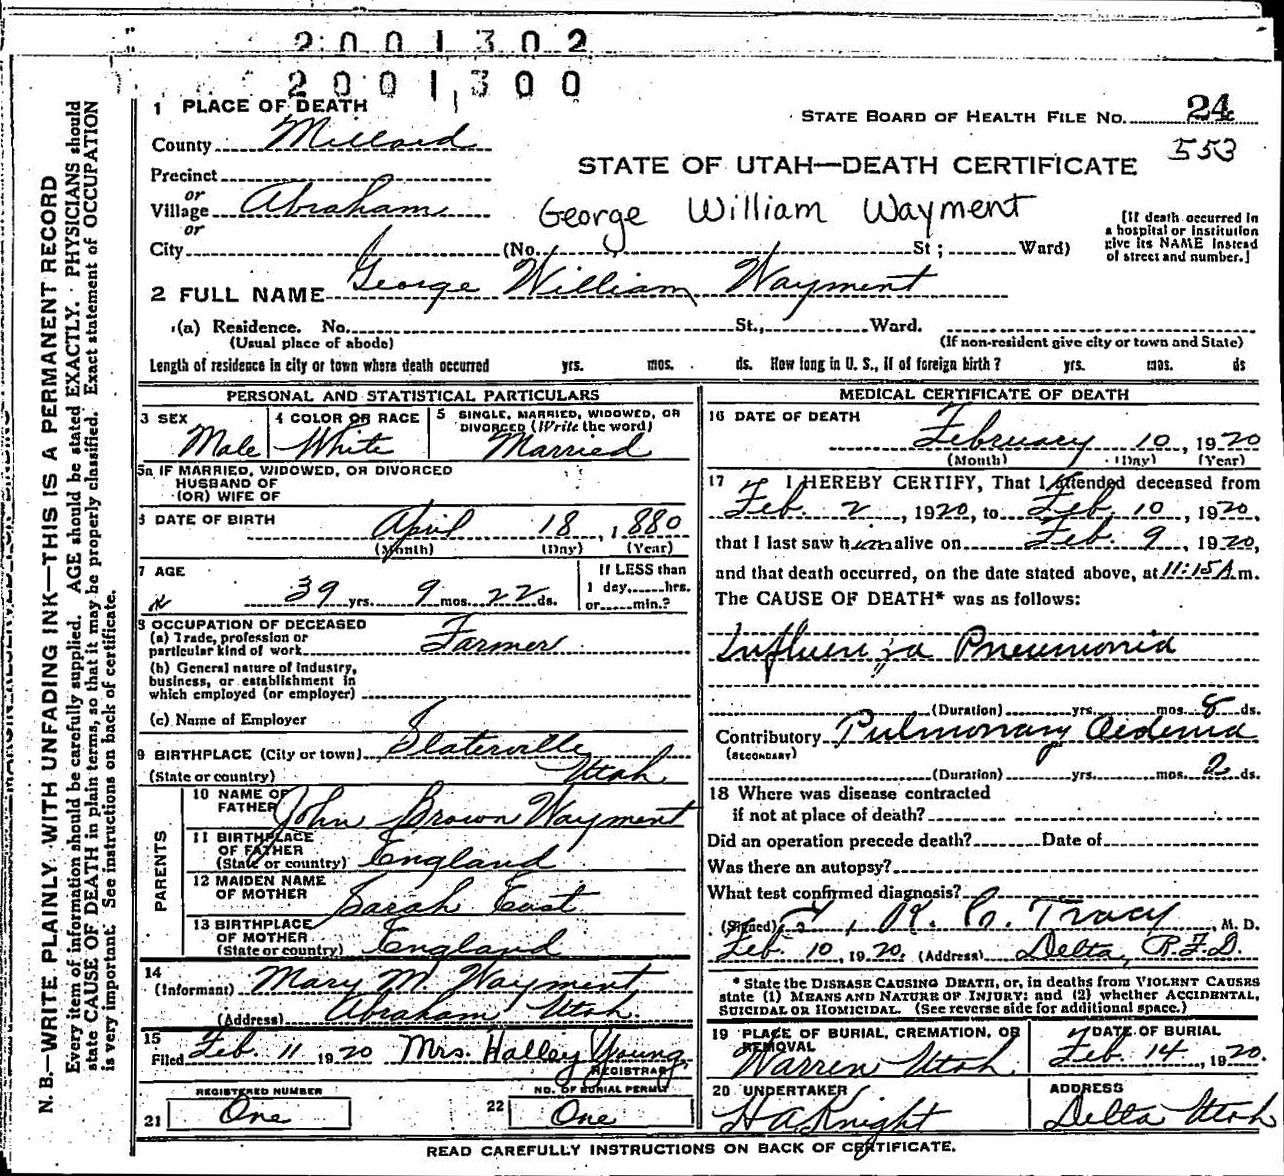 2001302
2001300
1 PLACE OF DEATH
STATE BOARD OF HEALTH FILE NO. 24
553
County Millard
STATE OF UTAH—DEATH CERTIFICATE
Precinct
or
Village Abraham
George William Wayment
[If death occurred in a hospital or institution give its NAME instead of street and number.]
or
City (No. St; Ward)
2 FULL NAME George William Wayment
(a) Residence. No. St., Ward.
(Usual place of abode) (If non-resident give city or town and State)
Length of residence in city or town where death occurred yrs. mos. ds. How long in U. S., if of foreign birth? yrs. mos. ds
PERSONAL AND STATISTICAL PARTICULARS
3 SEX 4 COLOR OR RACE 5 SINGLE, MARRIED, WIDOWED, OR
DIVORCED (Write the word)
Male White Married
5a IF MARRIED, WIDOWED, OR DIVORCED
HUSBAND OF
(OR) WIFE OF
6 DATE OF BIRTH April 18, 1880
(Month) (Day) (Year)
7 AGE 39 yrs. 9 mos. 22 ds.
If LESS than
1 day hrs.
or min.?
8 OCCUPATION OF DECEASED
(a) Trade, profession or
particular kind of work Farmer
(b) General nature of industry,
business, or establishment in
which employed (or employer)
(c) Name of Employer
9 BIRTHPLACE (City or town) Slaterville
(State or country) Utah
PARENTS
10 NAME OF
FATHER John Brown Wayment
11 BIRTHPLACE
OF FATHER
(State or country) England
12 MAIDEN NAME
OF MOTHER Sarah East
13 BIRTHPLACE
OF MOTHER
(State or country) England
14
(Informant) Mary M. Wayment
(Address) Abraham Utah.
15
Filed Feb. 11 1920 Mrs. Halley Young
REGISTRAR
REGISTERED NUMBER NO. OF BURIAL PERMIT
21 One 22 One
MEDICAL CERTIFICATE OF DEATH
16 DATE OF DEATH
February 10, 1920
(Month) (Day) (Year)
17 I HEREBY CERTIFY, That I attended deceased from
Feb. 2, 1920, to Feb. 10, 1920,
that I last saw him alive on Feb. 9, 1920,
and that death occurred, on the date stated above, at 11:15 A m.
The CAUSE OF DEATH* was as follows:
Influenza Pneumonia
(Duration) yrs. mos. 8 ds.
Contributory Pulmonary Oedema
(SECONDARY)
(Duration) yrs. mos. 2 ds.
18 Where was disease contracted
if not at place of death?
Did an operation precede death? Date of
Was there an autopsy?
What test confirmed diagnosis?
(Signed) Tracy, M. D.
Feb. 10, 1920. (Address) Delta, R.F.D.
* State the DISEASE CAUSING DEATH, or, in deaths from VIOLENT CAUSES
state (1) MEANS AND NATURE OF INJURY; and (2) whether ACCIDENTAL,
SUICIDAL OR HOMICIDAL. (See reverse side for additional space.)
19 PLACE OF BURIAL, CREMATION, OR
REMOVAL
Warren Utah
DATE OF BURIAL
Feb. 14, 1920.
20 UNDERTAKER
H A Knight
ADDRESS
Delta Utah
READ CAREFULLY INSTRUCTIONS ON BACK OF CERTIFICATE.
N. B.—WRITE PLAINLY WITH UNFADING INK—THIS IS A PERMANENT RECORD
Every item of information should be carefully supplied. AGE should be stated EXACTLY. PHYSICIANS should
state CAUSE OF DEATH in plain terms, so that it may be properly classified. Exact statement of OCCUPATION
is very important. See instructions on back of certificate.